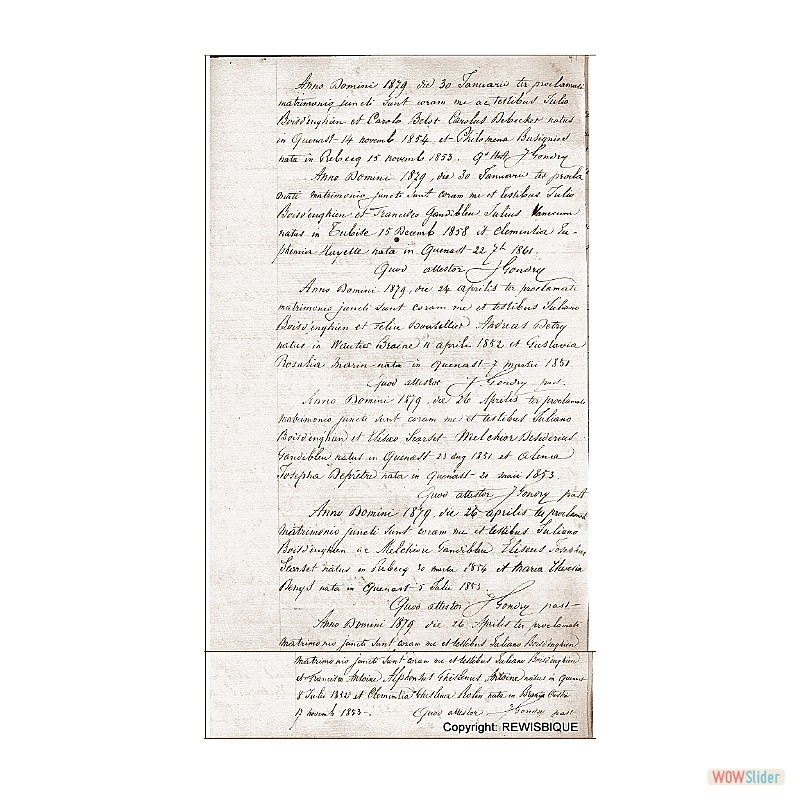 Anno Domini 1879 die 30 Januarii ter proclamati
matrimonio juncti sunt coram me ac testibus Julio
Boisd'enghien et Carolo Belot Carolus Debecker natus
in Quenast 14 novemb 1854 et Philomena
nata in Rebecq 15 novemb 1853. J Gondry
Anno Domini 1879, die 30 Januarii ter procla
mati matrimonio juncti sunt coram me et testibus Julio
Boisd'enghien et Francisco Gandibleu Julius
natus in Tubise 15 Decemb 1858 et Clementia Eu-
phemia Hayette nata in Quenast 22 7b 1861.
Quod attestor J Gondry
Anno Domini 1879, die 24 aprilis ter proclamati
matrimonio juncti sunt coram me et testibus Juliano
Boisd'enghien et Felix Andreas Detry
natus in Wautier Braine 11 aprilis 1852 et Gustavia
Rosalia Marin nata in Quenast 7 martii 1851
Quod attestor J. Gondry past.
Anno Domini 1879, die 26 Aprilis ter proclamati
matrimonio juncti sunt coram me et testibus Juliano
Boisd'enghien et Eliseo Scarset Melchior Desiderius
Gandibleu natus in Quenast 23 aug 1851 et
Josepha Deprêtre nata in Quenast 20 maii 1853
Quod attestor J Gondry past
Anno Domini 1879, die 26 aprilis ter proclamati
matrimonio juncti sunt coram me et testibus Juliano
Boisd'enghien ac Melchiore Gandibleu Eliseus Josephus
Scarset natus in Rebecq 30 1854 et Maria Theresia
nata in Quenast 5 Julii 1853
Quod attestor J Gondry past-
Anno Domini 1879 die 26 Aprilis ter proclamati
matrimonio juncti sunt coram me et testibus Juliano Boisd'enghien
matrimonio juncti sunt coram me et testibus Juliano Boisd'enghien
et Francisco Antoine. Alphonsus Ghislenus Antoine natus in Quenast
8 Julii 1852 et Clementia Ghislena Rolin nata in
17 novemb 1853-. Quod attestor J Gondry past
Copyright: REWISBIQUE
WOWSlider